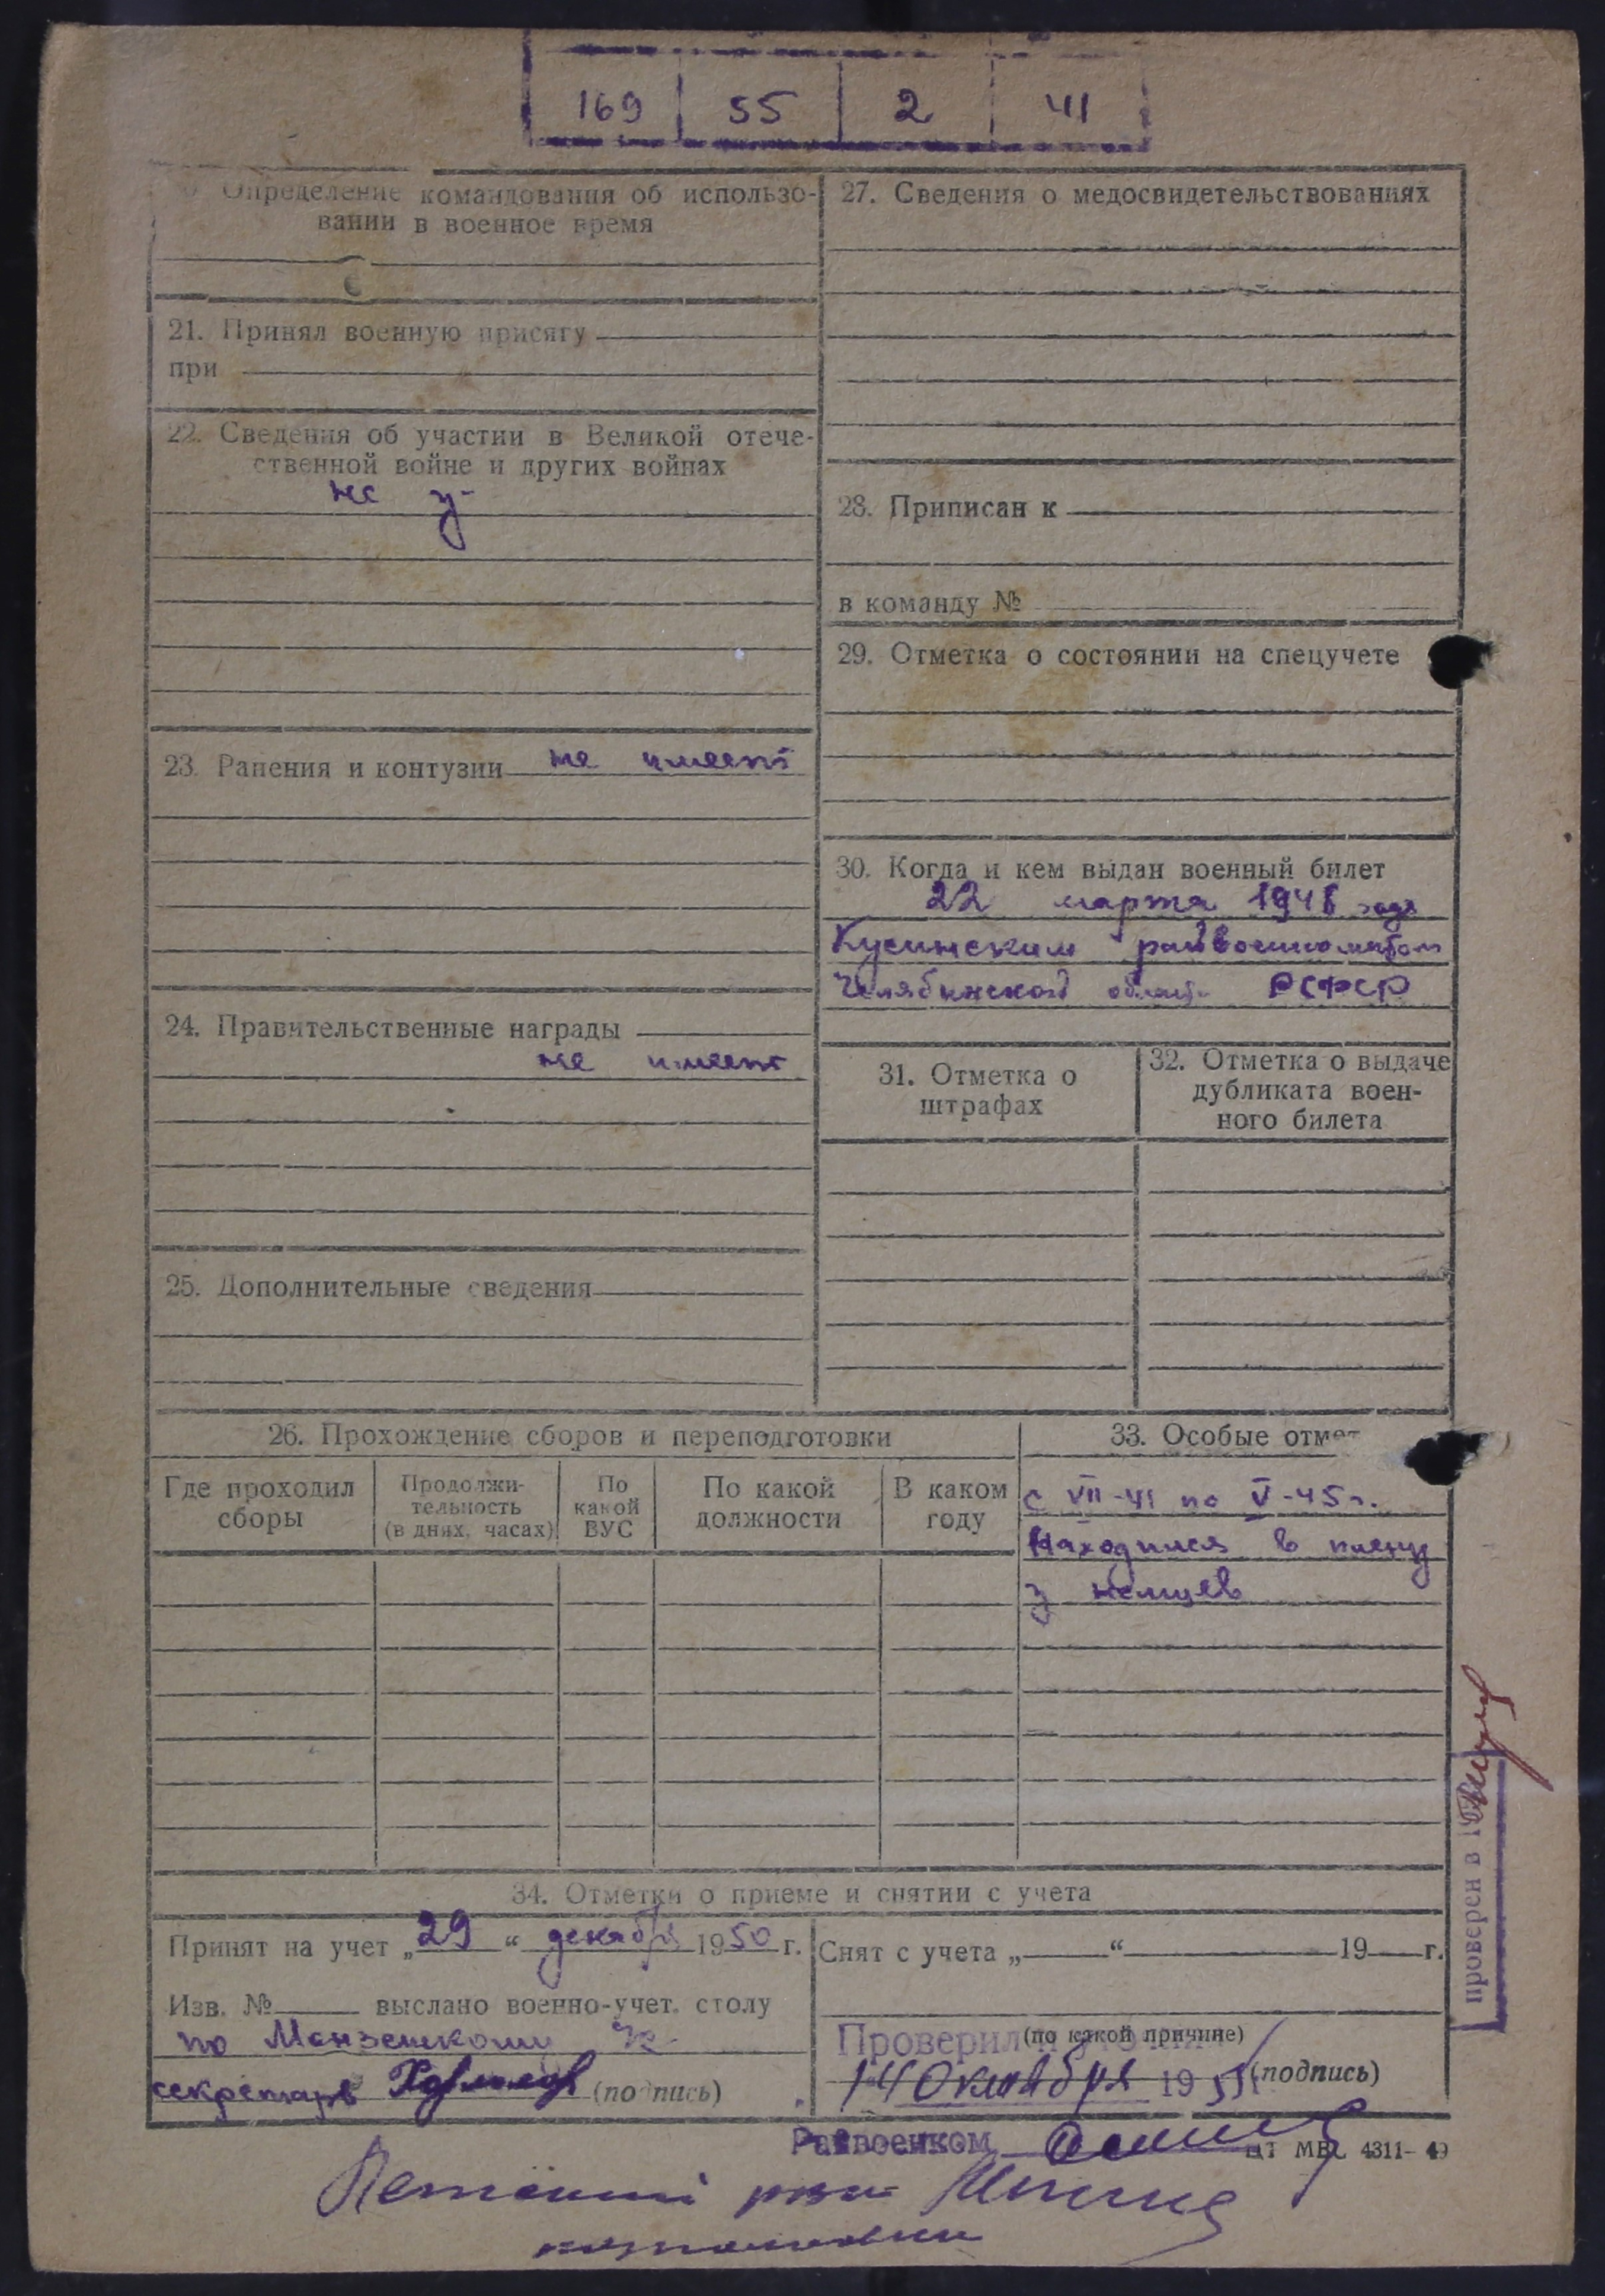 169 55 2 41
Определение командования об использо-
вании в военное время
21. Принял военную присягу
при
22. Сведения об участии в Великой отече-
ственной войне и других войнах
не у-
23. Ранения и контузии не имеет
24. Правительственные награды
не имеет
25. Дополнительные сведения
27. Сведения о медосвидетельствованиях
28. Приписан к
в команду №
29. Отметка о состоянии на спецучете
30. Когда и кем выдан военный билет
22 марта 1948 года
Кусинским райвоенкоматом
Челябинской област. РСФСР
31. Отметка о
штрафах
32. Отметка о выдаче
дубликата воен-
ного билета
26. Прохождение сборов и переподготовки
Где проходил
сборы
Продолжи-
тельность
(в днях, часах)
По
какой
ВУС
По какой
должности
В каком
году
33. Особые отмет
с VII-41 по V-45 г.
Находился в плену
у немцев
34. Отметки о приеме и снятии с учета
Принят на учет „29“ декабря 1950 г.
Изв. № выслано военно-учет. столу
по
секретарь (подпись)
Снят с учета „ “ 19 г.
(по какой причине)
Проверил
14 октября 195 (подпись)
Райвоенком
ЦТ МВС 4311-49
проверен в 19